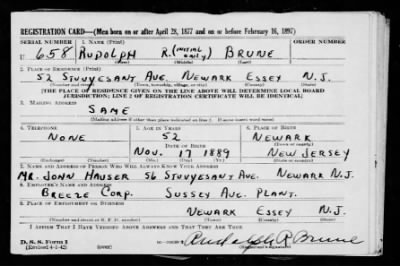 REGISTRATION CARD—(Men born on or after April 28, 1877 and on or before February 16, 1897)
SERIAL NUMBER 1. NAME (Print) ORDER NUMBER
U 658 RUDOLPH R. (INITIAL ONLY) BRUNE
(First) (Middle) (Last)
2. PLACE OF RESIDENCE (Print)
52 STUYVESANT AVE. NEWARK ESSEX N.J.
(Number and street) (Town, township, village, or city) (County) (State)
[THE PLACE OF RESIDENCE GIVEN ON THE LINE ABOVE WILL DETERMINE LOCAL BOARD
JURISDICTION; LINE 2 OF REGISTRATION CERTIFICATE WILL BE IDENTICAL]
3. MAILING ADDRESS
SAME
(Mailing address if other than place indicated on line 2. If same insert word same)
4. TELEPHONE 5. AGE IN YEARS 6. PLACE OF BIRTH
NONE 52 NEWARK
DATE OF BIRTH (Town or county)
NOV. 17 1889 NEW JERSEY
(Exchange) (Number) (Mo.) (Day) (Yr.) (State or country)
7. NAME AND ADDRESS OF PERSON WHO WILL ALWAYS KNOW YOUR ADDRESS
MR. JOHN HAUSER 56 STUYVESANT AVE. NEWARK N.J.
8. EMPLOYER'S NAME AND ADDRESS
BREEZE CORP. SUSSEX AVE. PLANT.
9. PLACE OF EMPLOYMENT OR BUSINESS
NEWARK ESSEX N.J.
(Number and street or R. F. D. number) (Town) (County) (State)
I AFFIRM THAT I HAVE VERIFIED ABOVE ANSWERS AND THAT THEY ARE TRUE.
D. S. S. Form 1
(Revised 4-1-42) (over) Rudolph R Brune